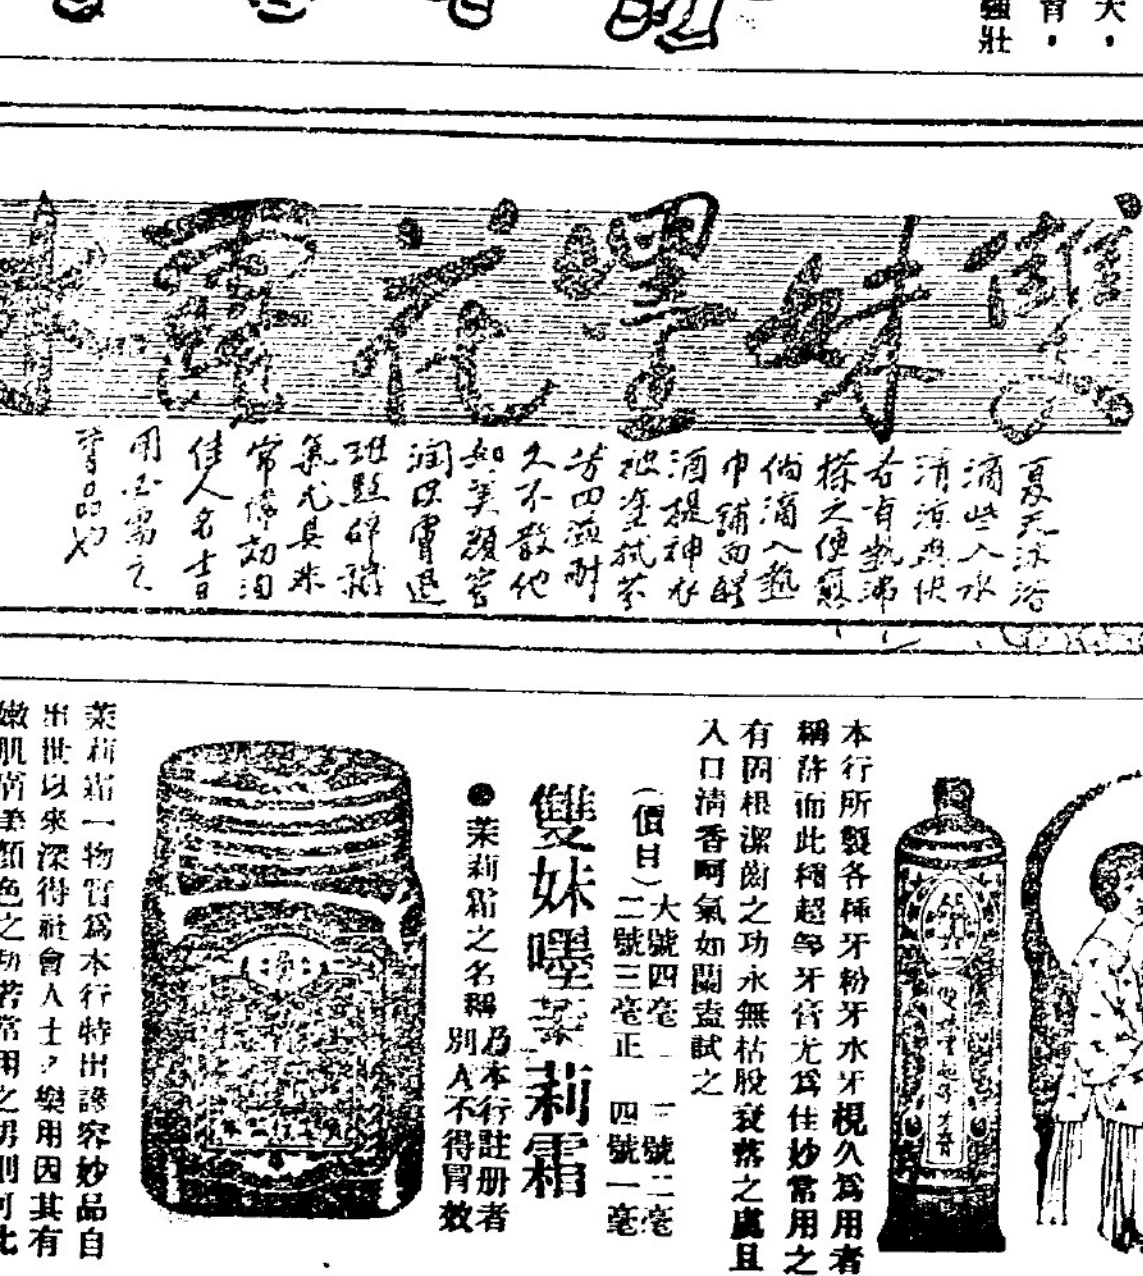 大，
育，
強壯
雙妹嚜花露水
夏天沐浴
滴些入水
清涼爽快
若有熱沸
搽之便癮
倘滴入熱
巾鋪面醒
酒提神衣
被塗拭芬
芳四溢耐
久不散他
如美顏容
潤皮膚退
斑點辟穢
氣尤具非
常偉効洵
佳人名士日
用必需之
品也
本行所製各種牙粉牙水牙梘久爲用者
稱許而此種超等牙膏尤爲佳妙常用之
有固根潔齒之功永無枯脫衰落之虞且
入口清香呵氣如蘭盍試之
（價目）
大號四毫 二號二毫
二號三毫正 四號一毫
雙妹嚜茉莉霜
●茉莉霜之名稱
乃本行註册者
別人不得冒效
茉莉霜一物實爲本行特出諺容妙品自
出世以來深得社會人士，樂用因其有
嫩肌膚美顏色之功若常用之男則可比